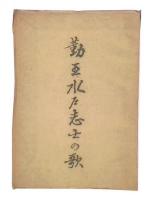 勤王水戸志士の歌